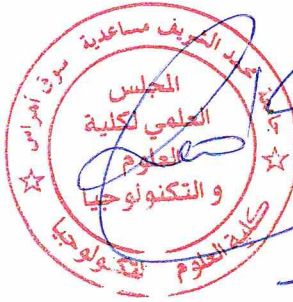 محمد الشريف مساعدية سوق أهراس
المجلس
العلمي لكلية
العلوم
و التكنولوجيا
كلية العلوم